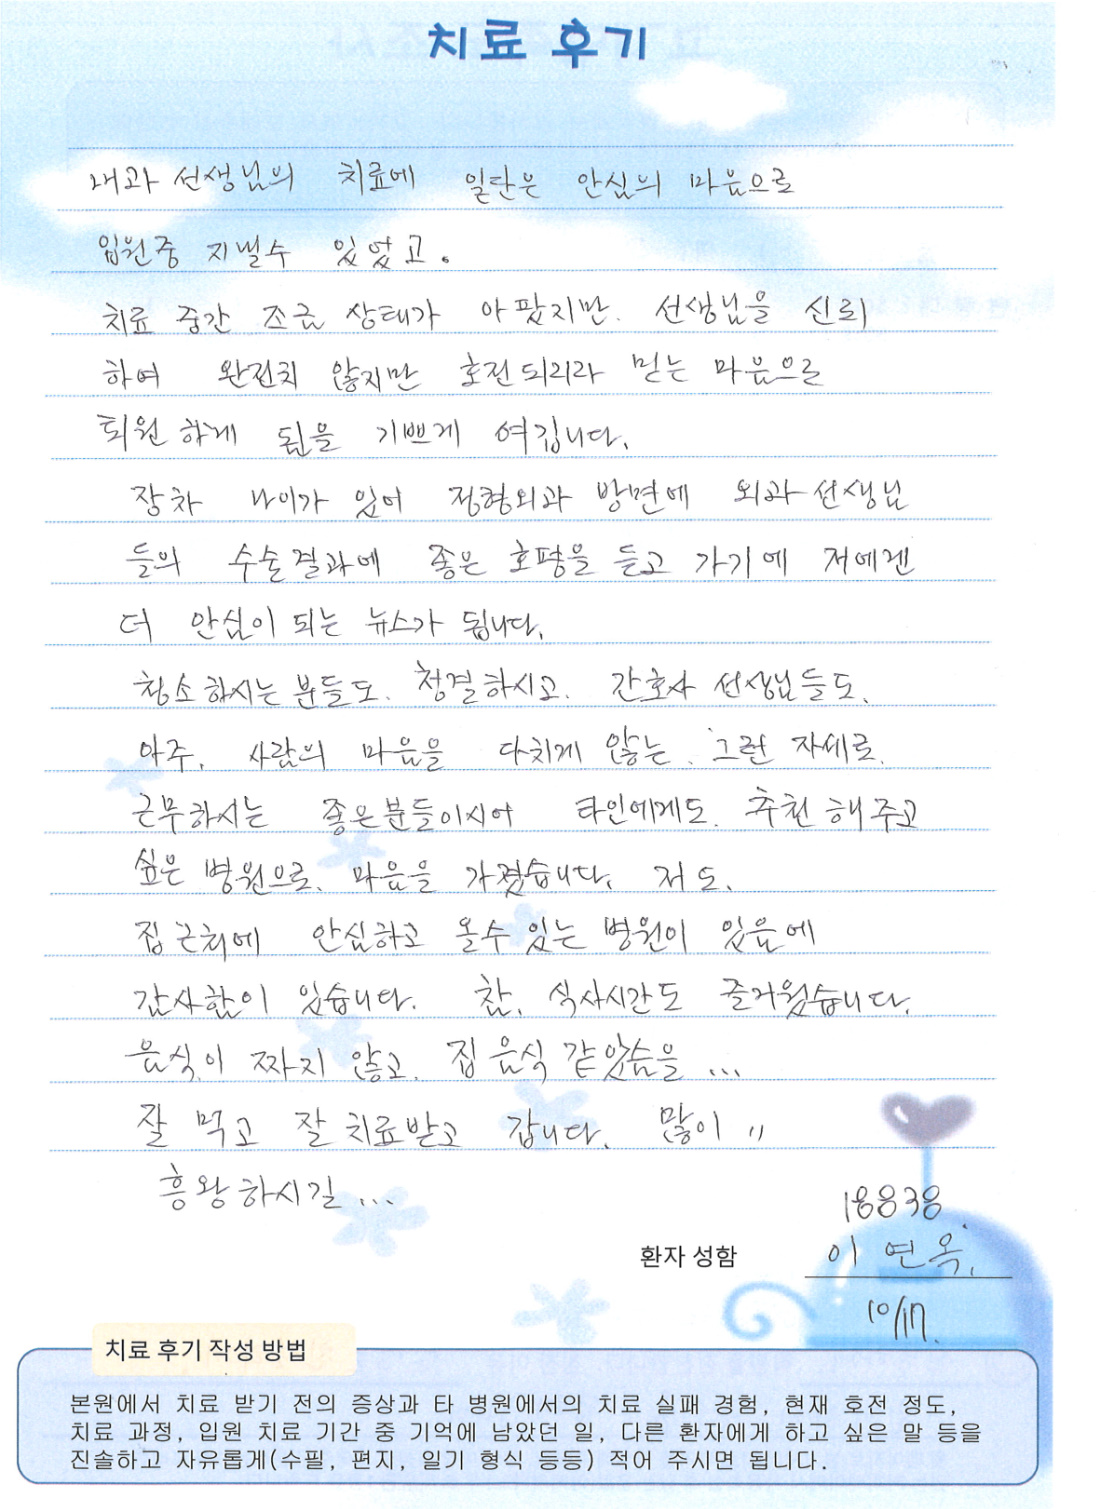 치료 후기
내과 선생님의 치료에 일단은 안심의 마음으로
입원중 지낼수 있었고.
치료 중간 조금 상태가 아팠지만. 선생님을 신뢰
하여 완전치 않지만 호전되리라 믿는 마음으로
퇴원하게 됨을 기쁘게 여깁니다.
장차 나이가 있어 정형외과 방면에 외과선생님
들의 수술결과에 좋은 호평을 듣고 가기에 저에겐
더 안심이 되는 뉴스가 됩니다.
청소하시는 분들도. 청결하시고. 간호사 선생님들도.
아주, 사람의 마음을 다치게 않는. 그런 자세로.
근무하시는 좋은분들이시어 타인에게도. 추천해주고
싶은 병원으로. 마음을 가졌습니다. 저도.
집근처에 안심하고 올수있는 병원이 있음에
감사함이 있습니다. 참, 식사시간도 즐거웠습니다.
음식이 짜지 않고. 집음식 같았슴을 ...
잘 먹고 잘치료받고 갑니다. 많이 〃
흥왕하시길 ...
18838.
환자 성함 이연옥.
10/17.
치료 후기 작성 방법
본원에서 치료 받기 전의 증상과 타 병원에서의 치료 실패 경험, 현재 호전 정도,
치료 과정, 입원 치료 기간 중 기억에 남았던 일, 다른 환자에게 하고 싶은 말 등을
진솔하고 자유롭게(수필, 편지, 일기 형식 등등) 적어 주시면 됩니다.